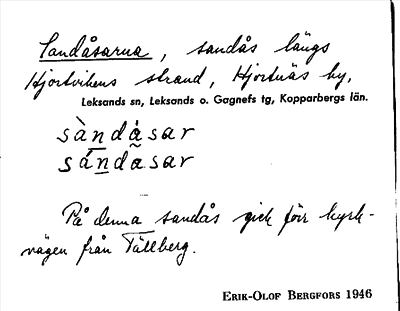 Sandåsarna, sandås längs
Hjortvikens strand, Hjortnäs by,
Leksands sn, Leksands o. Gagnefs tg, Kopparbergs län.
sàndåsar
sándasar
På denna sandås gick förr kyrk-
vägen från Tällberg.
ERIK-OLOF BERGFORS 1946